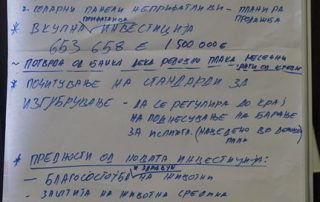 2. СОЛАРНИ ПАНЕЛИ НЕПРИФАТЛИВИ - ПЛАНИРА ПРОДАЖБА
* ВКУПНА ИНВЕСТИЦИЈА
653 658 € 1 500 000 €
~ ПОТВРДА ОД БАНКА ДЕКА РЕДОВНО ПЛАЌА
* ПОЧИТУВАЊЕ НА СТАНДАРДИ ЗА
ИЗГРБРУВАЊЕ - ДА СЕ РЕГУЛИРА ДО КРАЈ
НА ПОДНЕСУВАЊЕ НА БАРАЊЕ
ЗА ИСПЛАТА (НАВЕДЕНО ВО
* ПРЕДНОСТИ ОД НОВАТА ИНВЕСТИЦИЈА:
И ЗДРАВЈЕ
- БЛАГОСОСТОЈБА НА ЖИВОТНИ
- ЗАШТИТА НА ЖИВОТНА СРЕДИНА